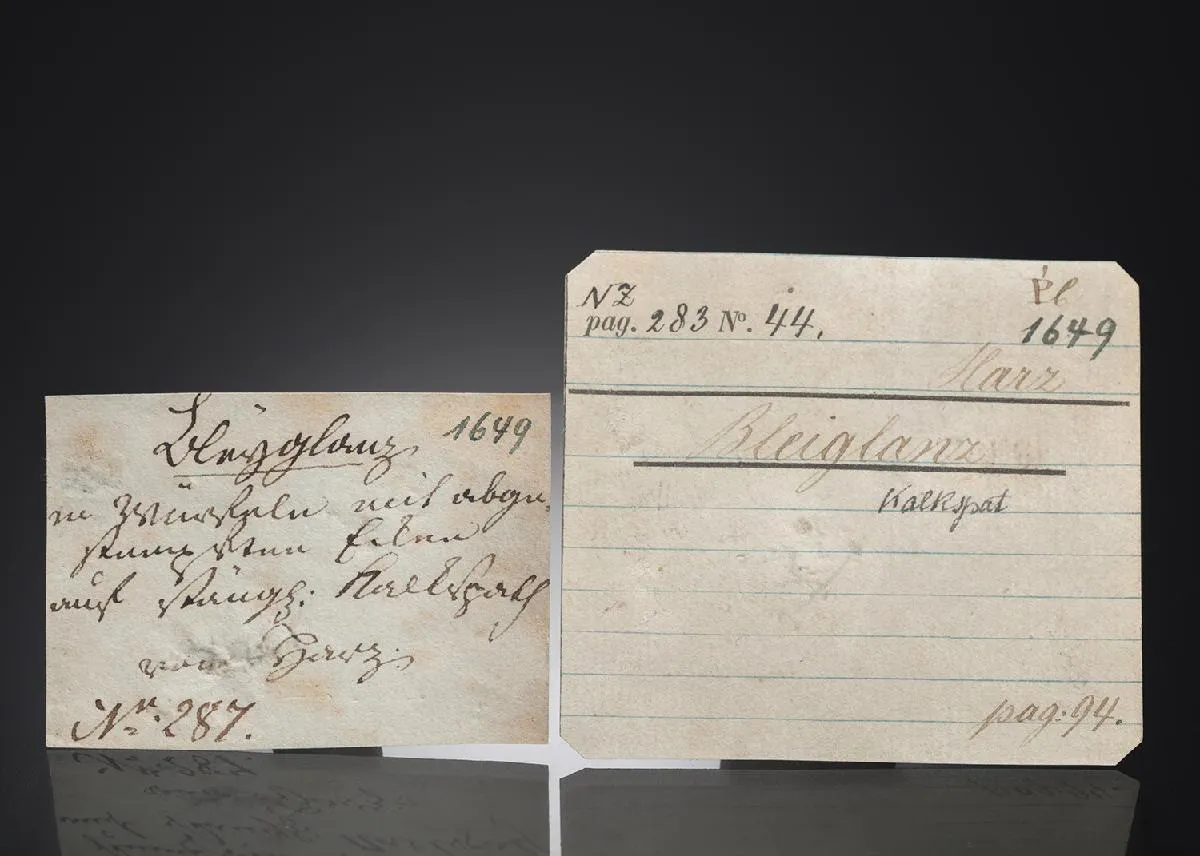 Bleyglanz
1649
in Würfeln mit abge-
stumpften Ecken
auf stängl: Kalkspath
vom Harz
Nr. 287.
NZ
pag. 283 No. 44.
Pb
1649
Harz
Bleiglanz
Kalkspat
pag. 94.